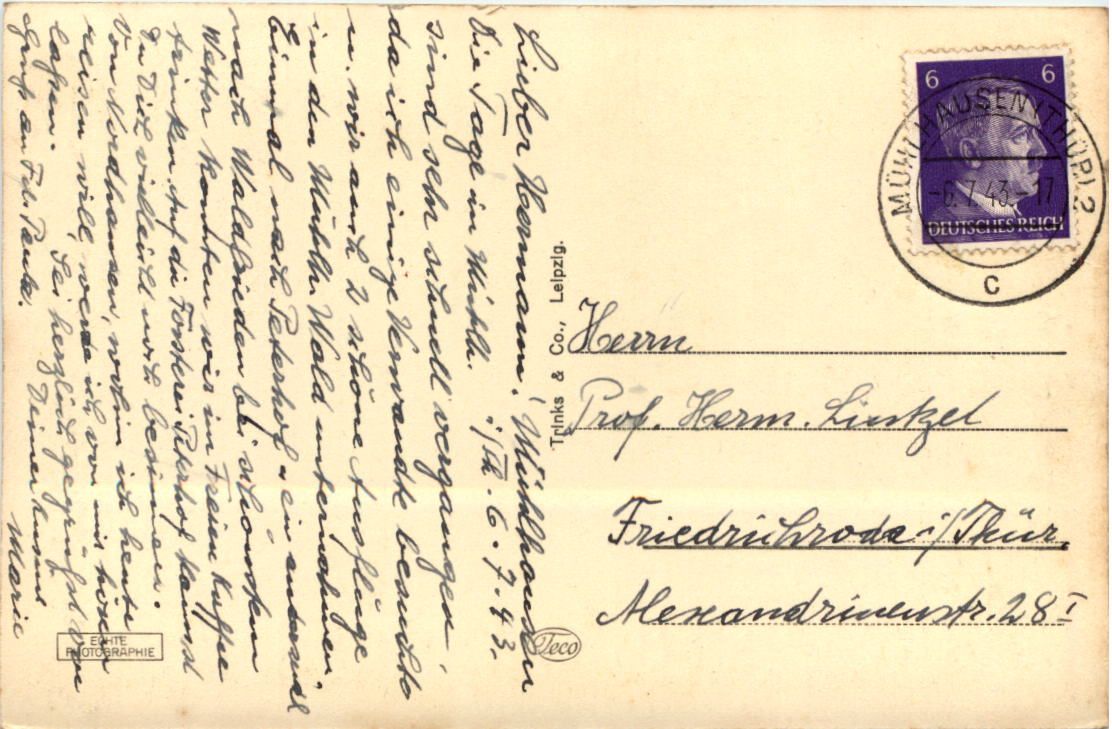 Lieber Hermann! Mühlhausen
Die Tage in Mühlh. i/Th. 6.7.43.
sind sehr schnell vergangen,
da ich einige Verwandte besuchte
u. wir auch 2 schöne Ausflüge
in den Mühlh. Wald unternahmen,
Einmal nach Peterhof u. ein andermal
nach Waldfrieden bei schönstem
Wetter konnten wir im Freien Kaffee
trinken. Auf die Försterei Peterhof kannst
Du Dich vielleicht noch besinnen.
Von Nordhausen, wohin ich heute
reisen will, werde ich von mir hören
lassen. Sei herzlich gegrüßt von
Deiner Kusine
Marie
Gruß an Frl. Paula.
ECHTE
PHOTOGRAPHIE
Trinks & Co., Leipzig.
Teco
6 6
DEUTSCHES REICH
MÜHLHAUSEN (THÜR) 2
-6.7.43.-17
c
Herrn
Prof. Herm. Lintzel
Friedrichroda i/Thür.
Alexandrinenstr. 28 I